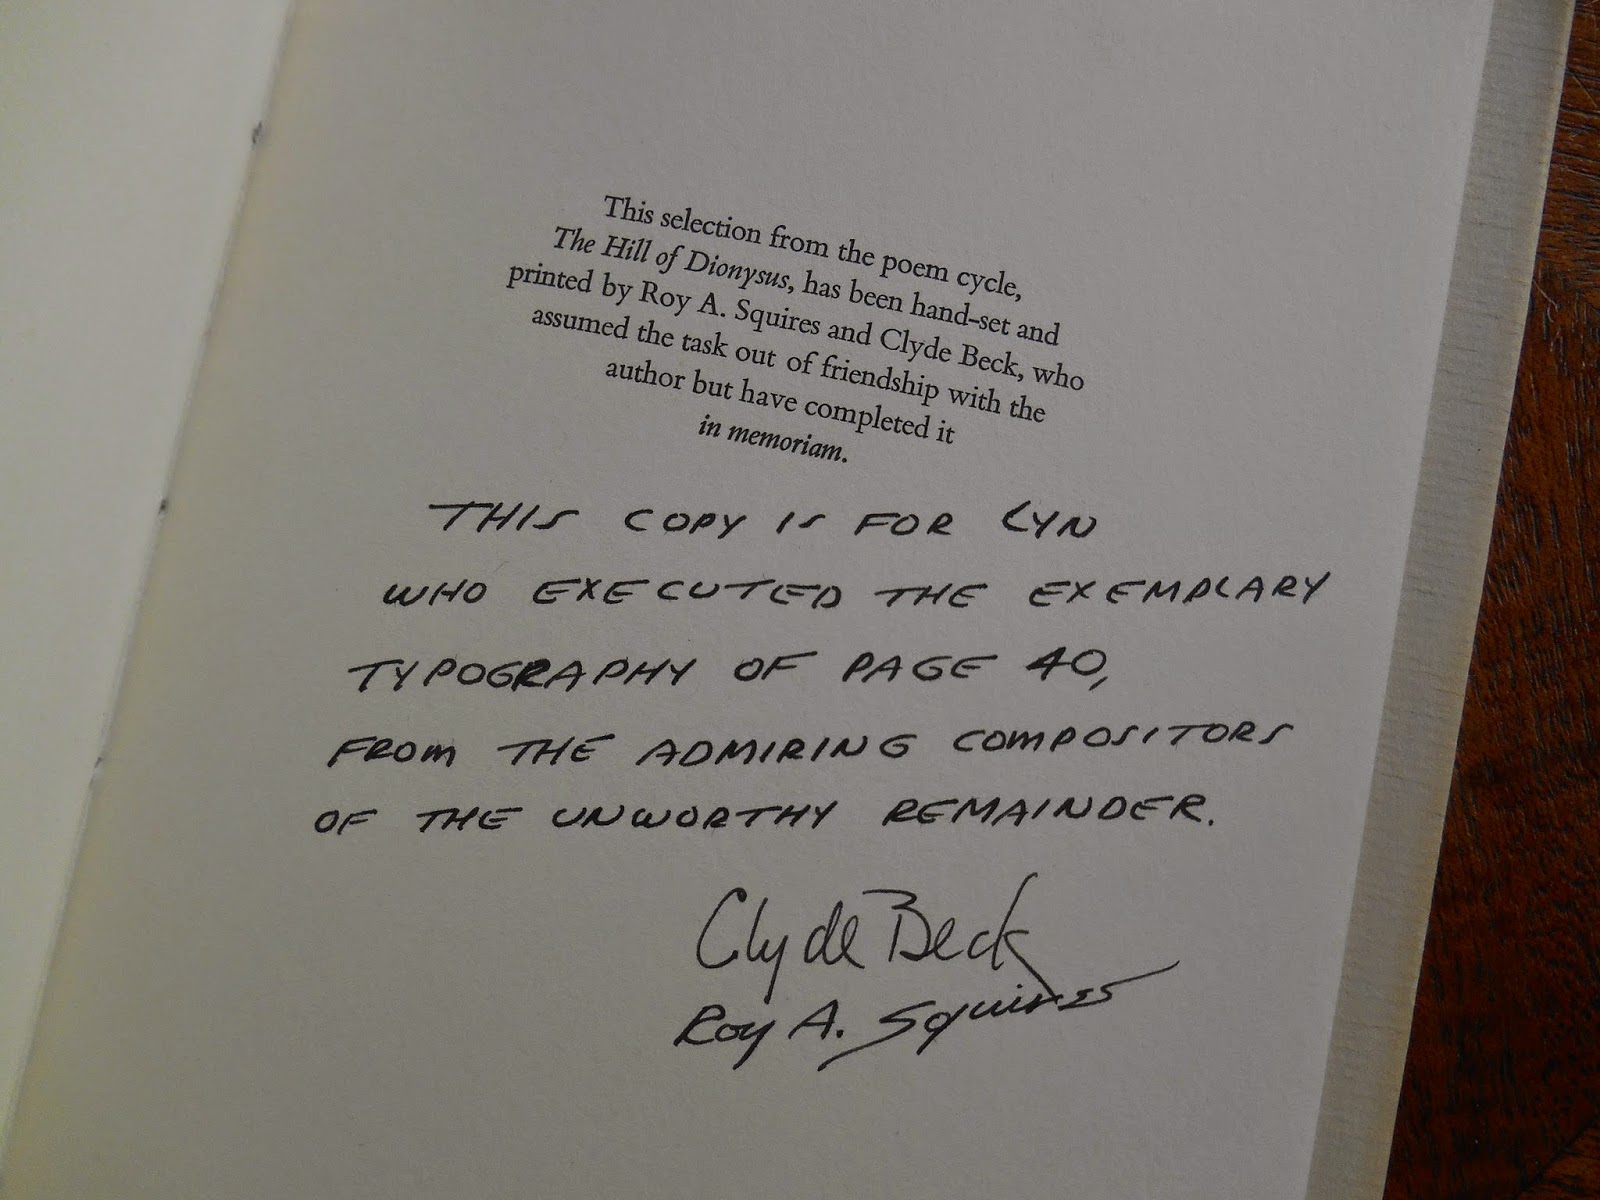 This selection from the poem cycle,
The Hill of Dionysus, has been hand-set and
printed by Roy A. Squires and Clyde Beck, who
assumed the task out of friendship with the
author but have completed it
in memoriam.
THIS COPY IS FOR LYN
WHO EXECUTED THE EXEMPLARY
TYPOGRAPHY OF PAGE 40,
FROM THE ADMIRING COMPOSITORS
OF THE UNWORTHY REMAINDER.
Clyde Beck
Roy A. Squires